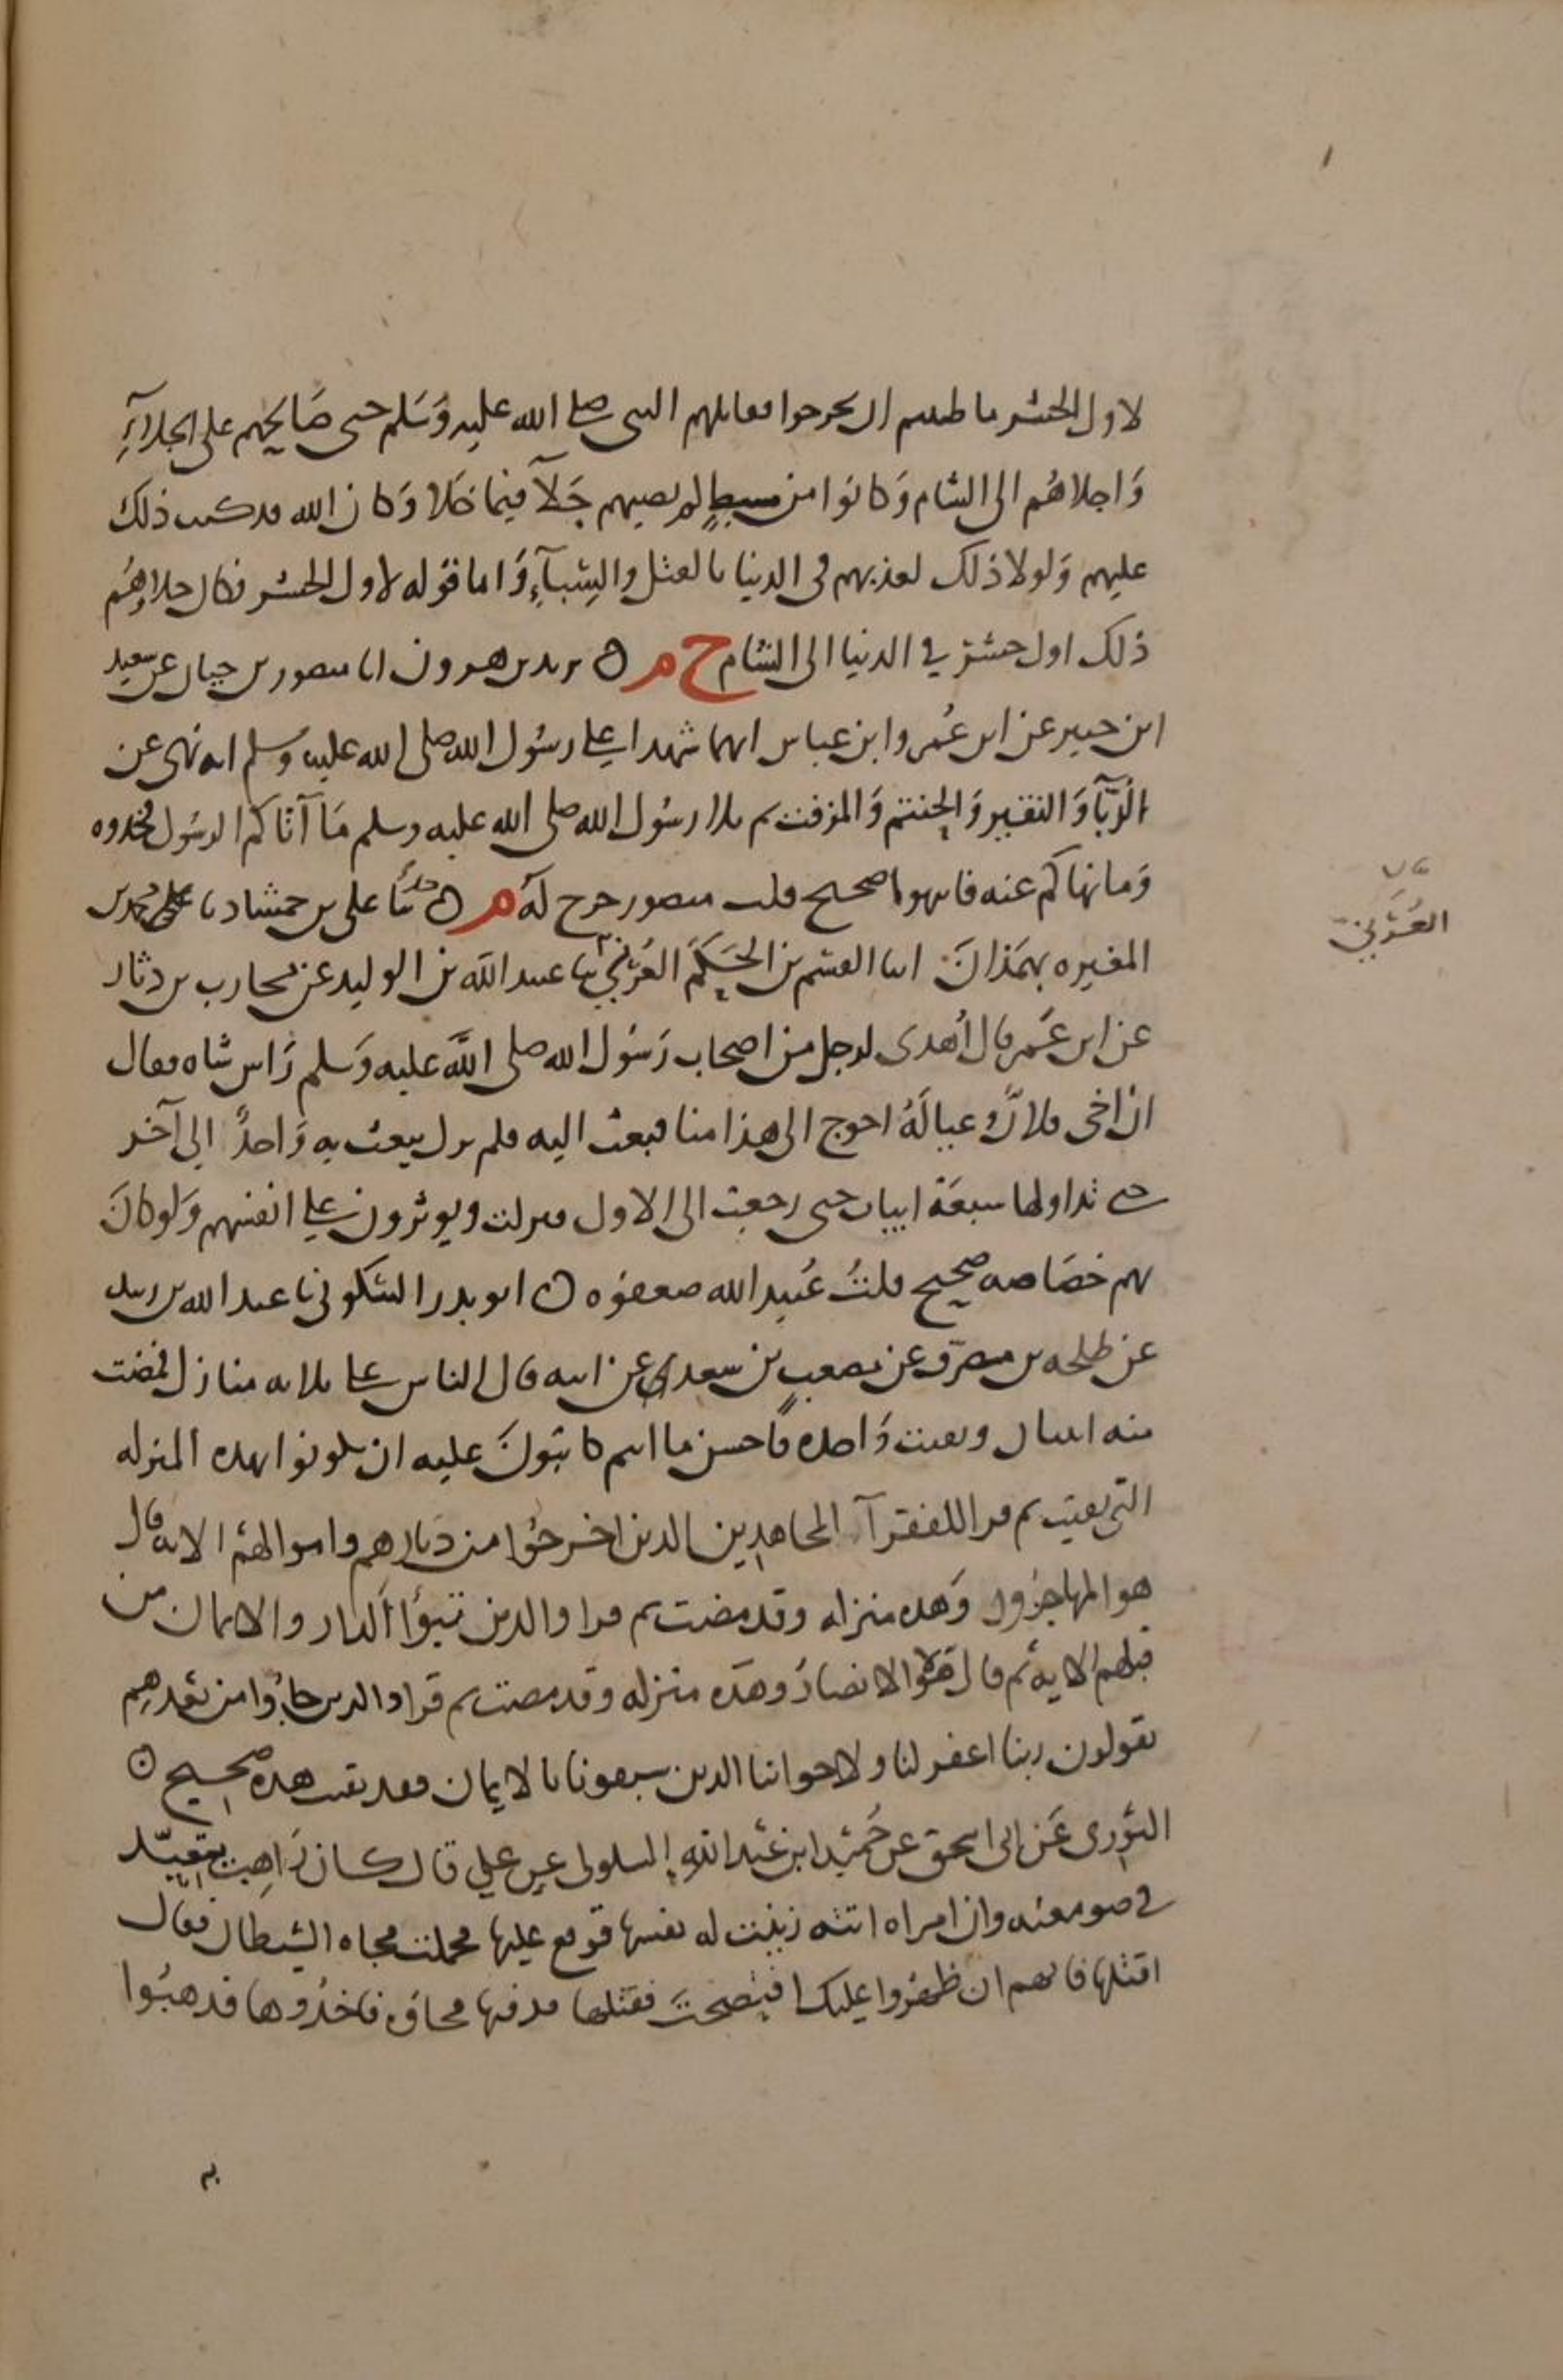 لاول الحشر ما ظننتم ان يخرجوا فقاتلهم النبي صلى الله عليه وسلم حتى صالحهم على الجلاء
واجلاهم الى الشام وكانوا من سبط لم يصبهم جلآ فيما خلا وكان الله قد كتب ذلك
عليهم ولولا ذلك لعذبهم في الدنيا بالقتل والسبآء واما قوله لاول الحشر فكان جلاهم
ذلك اول حشر في الدنيا الى الشام خ م ه يزيد بن هرون انا منصور بن حيان عن سعيد
ابن جبير عن ابن عمر وابن عباس انهما شهدا على رسول الله صلى الله عليه وسلم انه نهى عن
الدبآ والنقير والحنتم والمزفت ثم تلا رسول الله صلى الله عليه وسلم ما آتاكم الرسول فخذوه
وما نهاكم عنه فانتهوا صحيح قلت منصور خرج له م ه حدثنا علي بن حمشاد نا علي محمد بن
المغيره بهمذان انبا القسم بن الحكم العرني ثنا عبيد الله بن الوليد عن محارب بن دثار
عن ابن عمر قال أهدى لرجل من اصحاب رسول الله صلى الله عليه وسلم راس شاه فقال
ان اخي فلانا وعياله احوج الى هذا منا فبعث اليه فلم يزل يبعث به واحد الى آخر
حتى تداولها سبعة ابيات حتى رجعت الى الاول فنزلت ويوثرون على انفسهم ولو كان
بهم خصاصه صحيح قلت عبيد الله ضعفوه ه ابو بدر السكوني نا عبد الله بن زبيد
عن طلحه بن مصرف عن مصعب بن سعد عن ابيه قال الناس على ثلاثه منازل فمضت
منه اثنتان وبقيت واحده فاحسن ما انتم كائنون عليه ان تكونوا بهذه المنزله
التي بقيت ثم قرا للفقرآ المهاجرين الذين اخرجوا من ديارهم واموالهم الايه قال
هو المهاجرون وهذه منزله وقد مضت ثم قرا والذين تبوؤا الدار والايمان من
قبلهم الايه ثم قال هؤلا الانصار وهذه منزله وقد مضت ثم قرا والذين جاؤا من بعدهم
يقولون ربنا اغفر لنا ولاخواننا الذين سبقونا بالايمان فقد بقيت هذه صحيح ه
الثوري عن ابي اسحق عن حميد ابن عبد الله السلولي عن علي قال كان راهب يتعبد
في صومعته وان امراه اتته زينت له نفسها فوقع عليها فحملت فجاه الشيطان فقال
اقتلها فانهم ان ظهروا عليك افتضحت فقتلها فدفنها فجاؤه فاخذوها فذهبوا
العرني